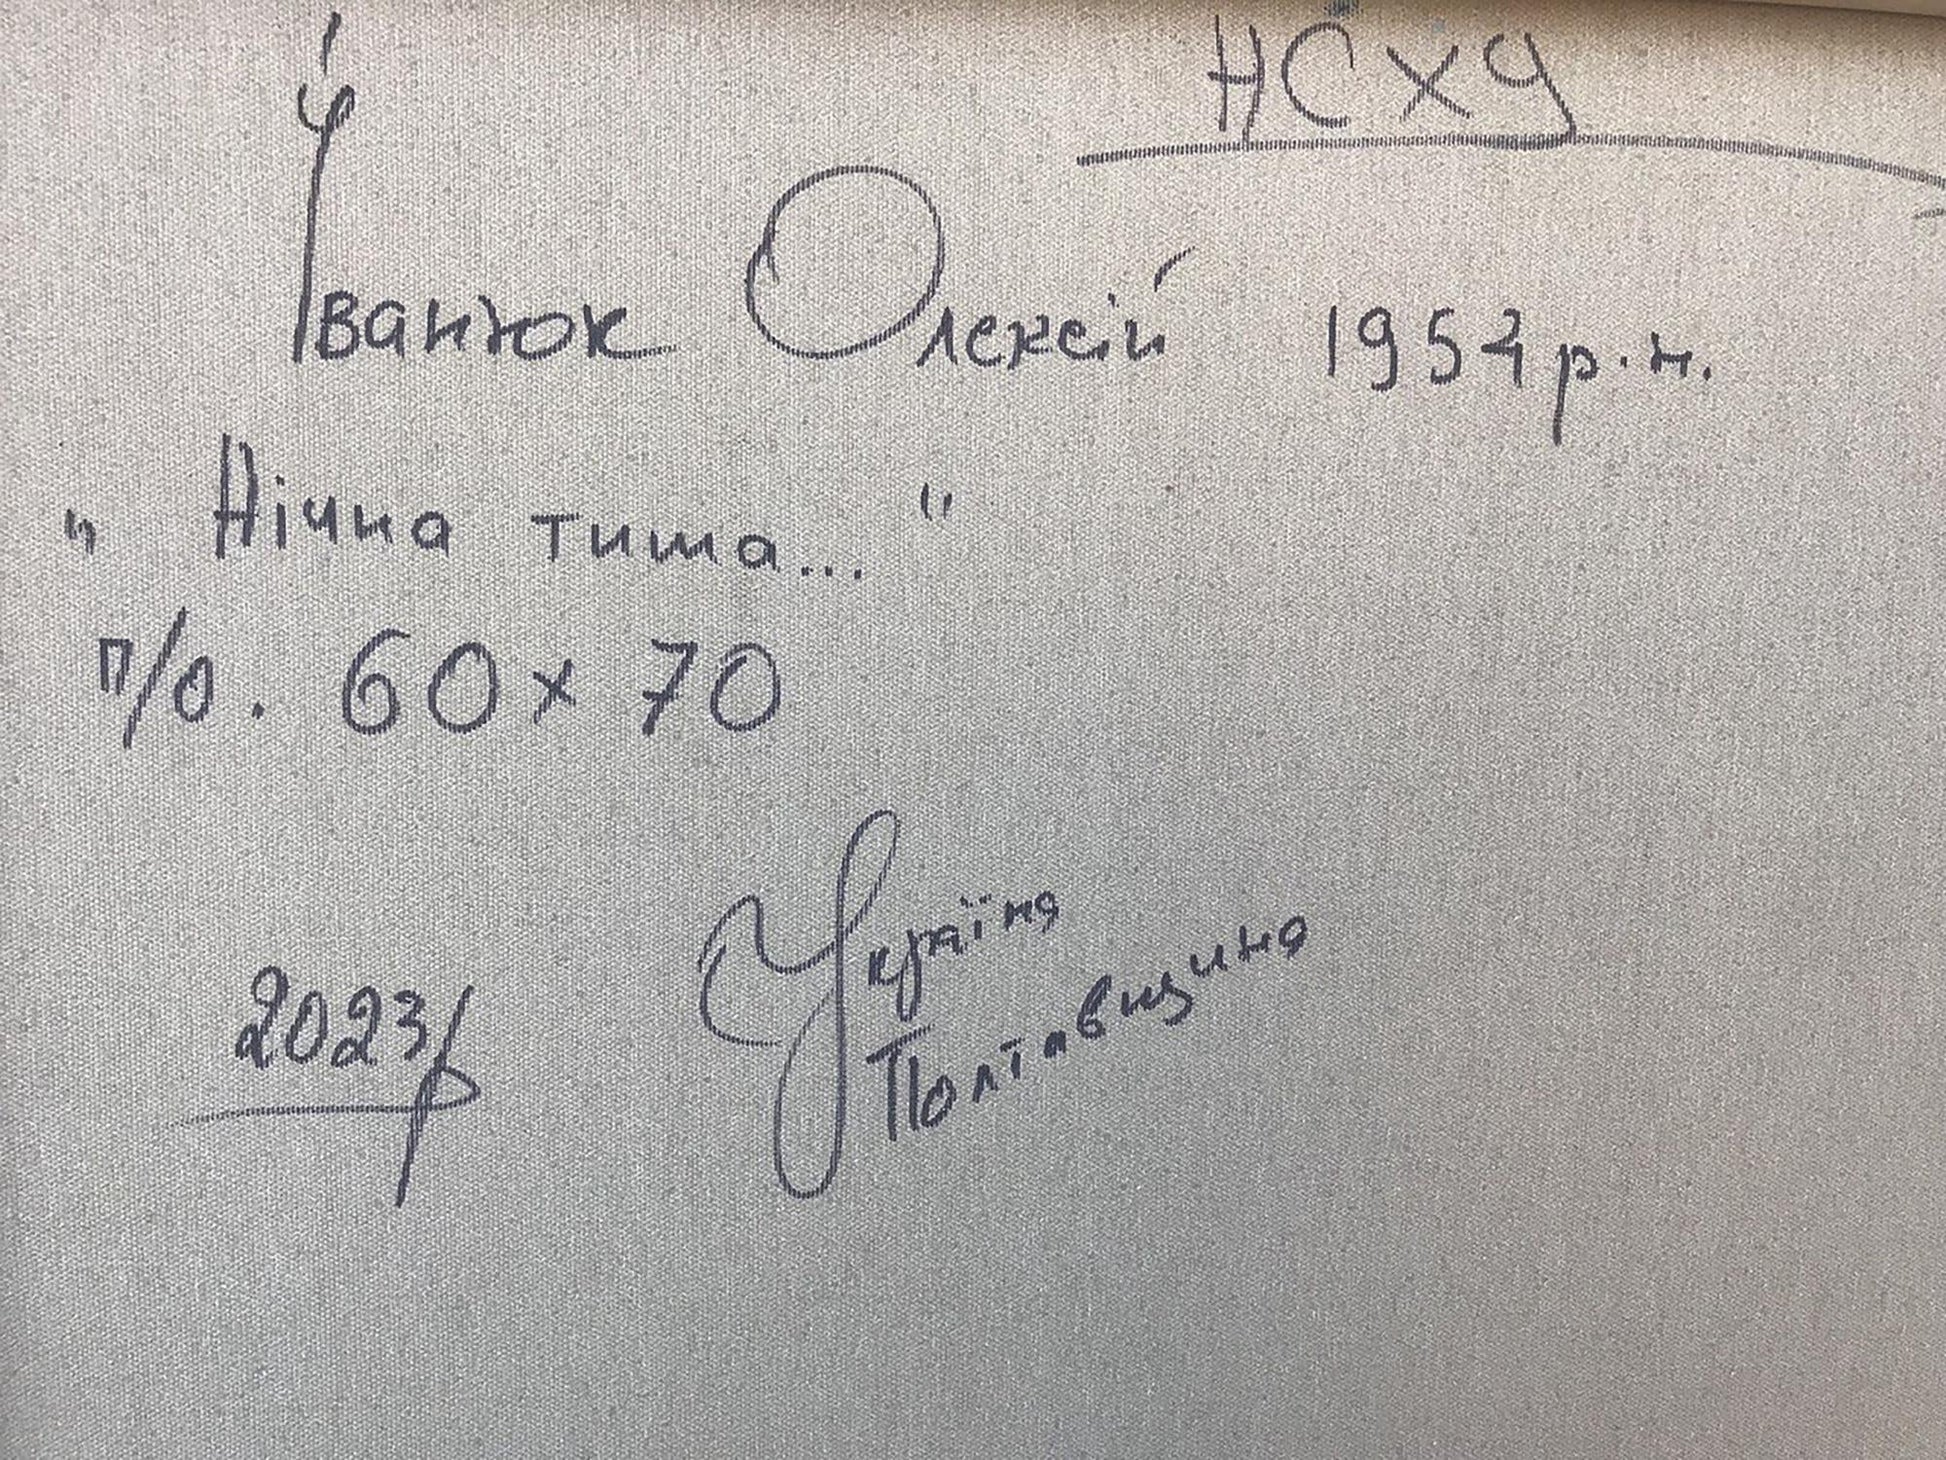 НСХУ
Іванюк Олексій 1954 р.н.
„ Нічна тиша... "
п/о. 60 х 70
Україна
Полтавщина
2023р